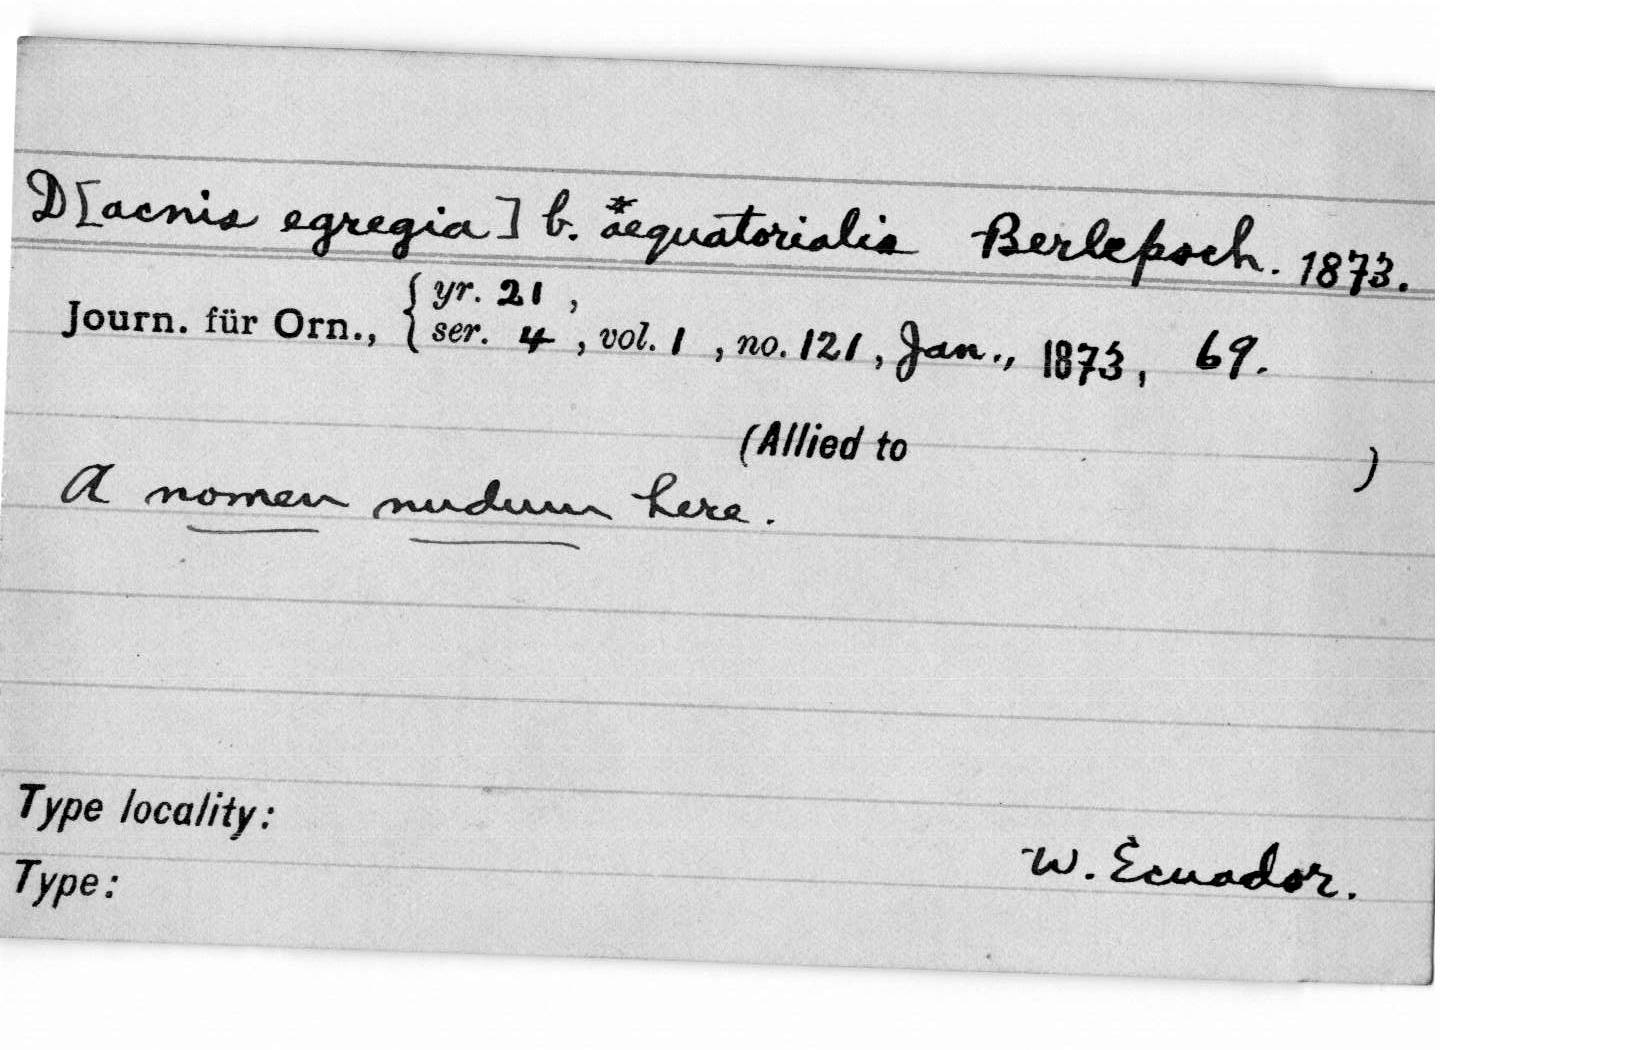 D[acnis egregia] b. *aequatorialis Berlepsch. 1873.
Journ. für Orn., { yr. 21 ,
ser. 4 , vol. 1 , no. 121 , Jan., 1873, 69.
(Allied to )
A nomen nudum here.
Type locality:
W. Ecuador.
Type: